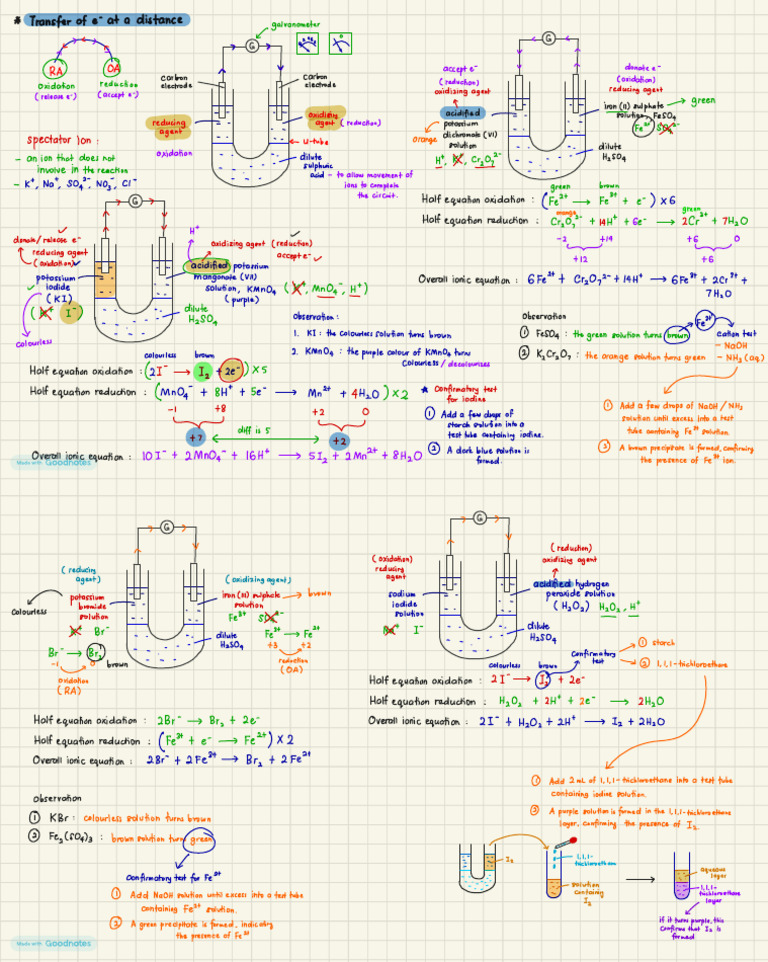 * Transfer of e⁻ at a distance
galvanometer
G
RA
OA
oxidation
(release e⁻)
reduction
(accept e⁻)
carbon
electrode
carbon
electrode
reducing
agent
oxidizing
agent (reduction)
oxidation
U-tube
dilute
sulphuric
acid - to allow movement of
ions to complete
the circuit.
spectator ion :
- an ion that does not
involve in the reaction
- K⁺, Na⁺, SO₄²⁻, NO₃⁻, Cl⁻
G
accept e⁻
(reduction)
oxidizing agent
acidified
potassium
dichromate (VI)
solution
orange
H⁺, K⁺, Cr₂O₇²⁻
donate e⁻
(oxidation)
reducing agent
iron (II) sulphate
solution, FeSO₄
green
Fe²⁺ SO₄²⁻
dilute
H₂SO₄
green brown
Half equation oxidation : (Fe²⁺ → Fe³⁺ + e⁻) × 6
orange green
Half equation reduction : Cr₂O₇²⁻ + 14H⁺ + 6e⁻ → 2Cr³⁺ + 7H₂O
-2 +14 +6 0
+12 +6
Overall ionic equation : 6Fe²⁺ + Cr₂O₇²⁻ + 14H⁺ → 6Fe³⁺ + 2Cr³⁺ +
7H₂O
Observation
① FeSO₄ : the green solution turns brown
② K₂Cr₂O₇ : the orange solution turns green
Fe³⁺
cation test
- NaOH
- NH₃ (aq)
① Add a few drops of NaOH / NH₃
solution until excess into a test
tube containing Fe³⁺ solution.
② A brown precipitate is formed, confirming
the presence of Fe³⁺ ion.
G
donate/release e⁻
reducing agent
(oxidation)
potassium
iodide
(KI)
(K⁺ I⁻)
colourless
H⁺
oxidizing agent (reduction)
accept e⁻
acidified potassium
manganate (VII)
solution, KMnO₄ (K⁺, MnO₄⁻, H⁺)
(purple)
dilute
H₂SO₄
Observation :
1. KI : the colourless solution turns brown
2. KMnO₄ : the purple colour of KMnO₄ turns
colourless / decolourises
colourless brown
Half equation oxidation : (2I⁻ → I₂ + 2e⁻) × 5
Half equation reduction : (MnO₄⁻ + 8H⁺ + 5e⁻ → Mn²⁺ + 4H₂O) × 2
-1 +8 +2 0
+7 diff is 5 +2
Overall ionic equation : 10I⁻ + 2MnO₄⁻ + 16H⁺ → 5I₂ + 2Mn²⁺ + 8H₂O
* Confirmatory test
for iodine
① Add a few drops of
starch solution into a
test tube containing iodine.
② A dark blue solution is
formed.
Made with Goodnotes
G
(reducing
agent)
(oxidizing agent)
colourless
potassium
bromide
solution
K⁺ Br⁻
Br⁻ → Br₂
-1 0 brown
oxidation
(RA)
iron (III) sulphate
solution
brown
Fe³⁺ SO₄²⁻
Fe³⁺ → Fe²⁺
+3 +2
reduction
(OA)
dilute
H₂SO₄
Half equation oxidation : 2Br⁻ → Br₂ + 2e⁻
Half equation reduction : (Fe³⁺ + e⁻ → Fe²⁺) × 2
Overall ionic equation : 2Br⁻ + 2Fe³⁺ → Br₂ + 2Fe²⁺
Observation
① KBr : colourless solution turns brown
② Fe₂(SO₄)₃ : brown solution turn green
Confirmatory test for Fe²⁺
① Add NaOH solution until excess into a test tube
containing Fe²⁺ solution.
② A green precipitate is formed, indicating
the presence of Fe²⁺
Made with Goodnotes
G
(oxidation)
reducing
agent
sodium
iodide
solution
Na⁺ I⁻
(reduction)
oxidizing agent
acidified hydrogen
peroxide solution
(H₂O₂) H₂O₂, H⁺
dilute
H₂SO₄
Confirmatory
test
① starch
② 1,1,1-trichloroethane
colourless brown
Half equation oxidation : 2I⁻ → I₂ + 2e⁻
Half equation reduction : H₂O₂ + 2H⁺ + 2e⁻ → 2H₂O
Overall ionic equation : 2I⁻ + H₂O₂ + 2H⁺ → I₂ + 2H₂O
① Add 2 mL of 1,1,1-trichloroethane into a test tube
containing iodine solution.
② A purple solution is formed in the 1,1,1-trichloroethane
layer, confirming the presence of I₂.
I₂
1,1,1-
trichloroethane
solution
containing
I₂
aqueous
layer
1,1,1-
trichloroethane
layer
if it turns purple, this
confirms that I₂ is
formed